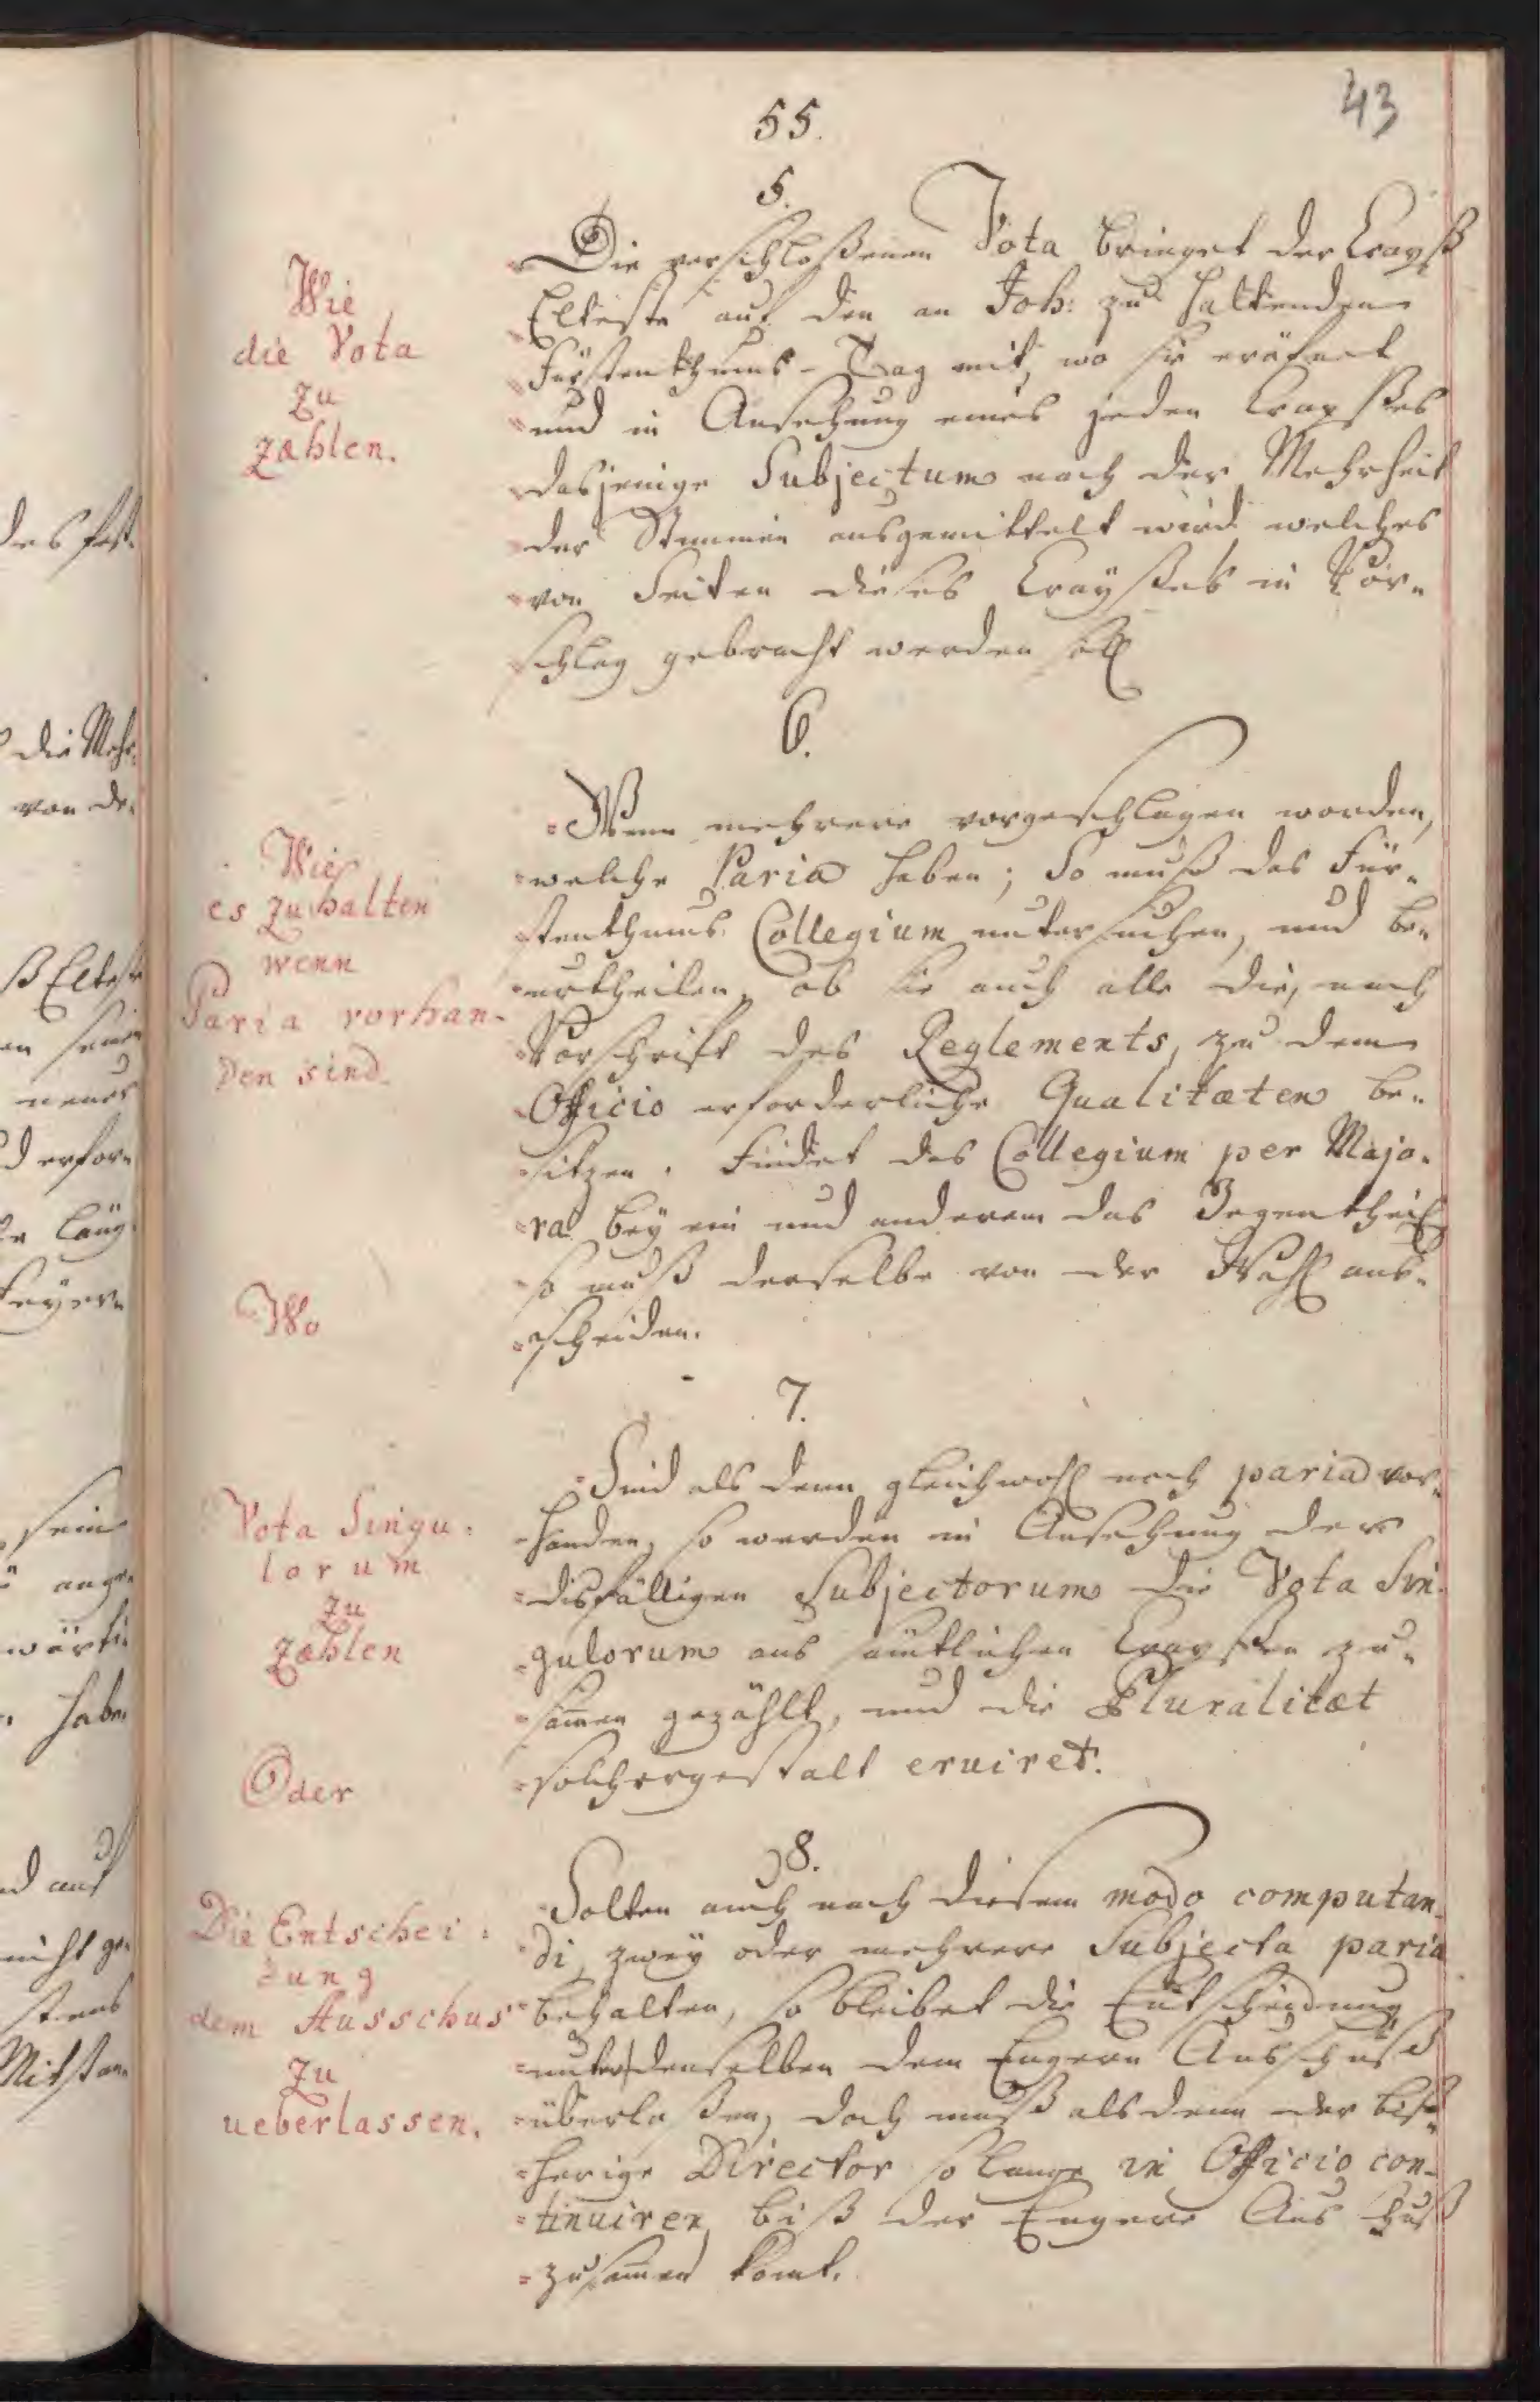 43
55.
5.
Wie
die Vota
zu
zæhlen.
Die verschloßenen Vota bringet der Crayß
Elteste auf den an Joh: zu haltenden
Fürstenthums-Tag mit, wo sie eröfnet
und in Ansehung eines jeden Crayßes
dasjenige Subjectum nach der Mehrheit
der Stimmen ausgemittelt wird welches
von Seiten dieses Crayßes in Vor„
schlag gebracht werden soll
6.
Wie
es zu halten
wenn
Paria vorhan-
den sind.
Wenn mehrere vorgeschlagen worden,
welche Paria haben; So muß das Für„
stenthums Collegium untersuchen, und be„
urtheilen, ob sie auch alle die, nach
Vorschrift des Reglements, zu dem
Officio erforderliche Qualitæten be„
sitzen. Findet das Collegium per Majo„
ra bey ein und anderem das Gegentheil
so muß derselbe von der Wahl aus„
scheiden.
Wo
7.
Vota Singu:
lorum
zu
zæhlen
Sind als denn gleichwohl noch paria vor„
handen, so werden in Ansehung der
disfälligen Subjectorum die Vota Sin„
gulorum aus sämtlichen Crayßen zu„
samen gezählt, und die Pluralitæt
solchergestalt eruiret.
Oder
8.
Die Entschei:
dung
dem Ausschus
zu
ueberlassen.
Solten auch nach diesem modo computan„
di, zwey oder mehrere Subjecta paria
behalten, so bleibet die Entscheidung
unter denselben dem Engern Ausschuß
überlaßen, doch muß als denn der biß„
herige Director so lange in Officio con„
tinuiren, biß der Engere Ausschuß
zusamen komt.